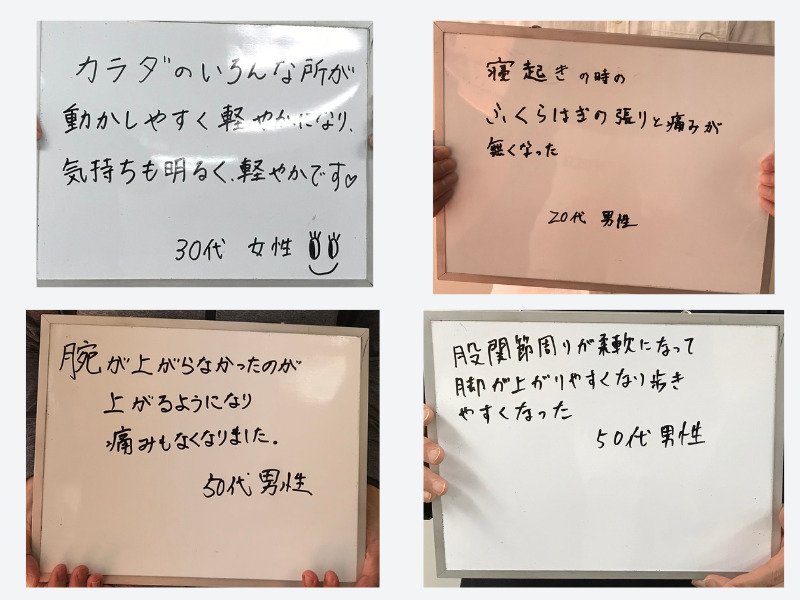 カラダのいろんな所が
動かしやすく軽やかになり、
気持ちも明るく、軽やかです♡
30代 女性
寝起きの時の
ふくらはぎの張りと痛みが
無くなった
20代 男性
腕が上がらなかったのが
上がるようになり
痛みもなくなりました。
50代 男性
股関節周りが柔軟になって
脚が上がりやすくなり歩き
やすくなった
50代 男性